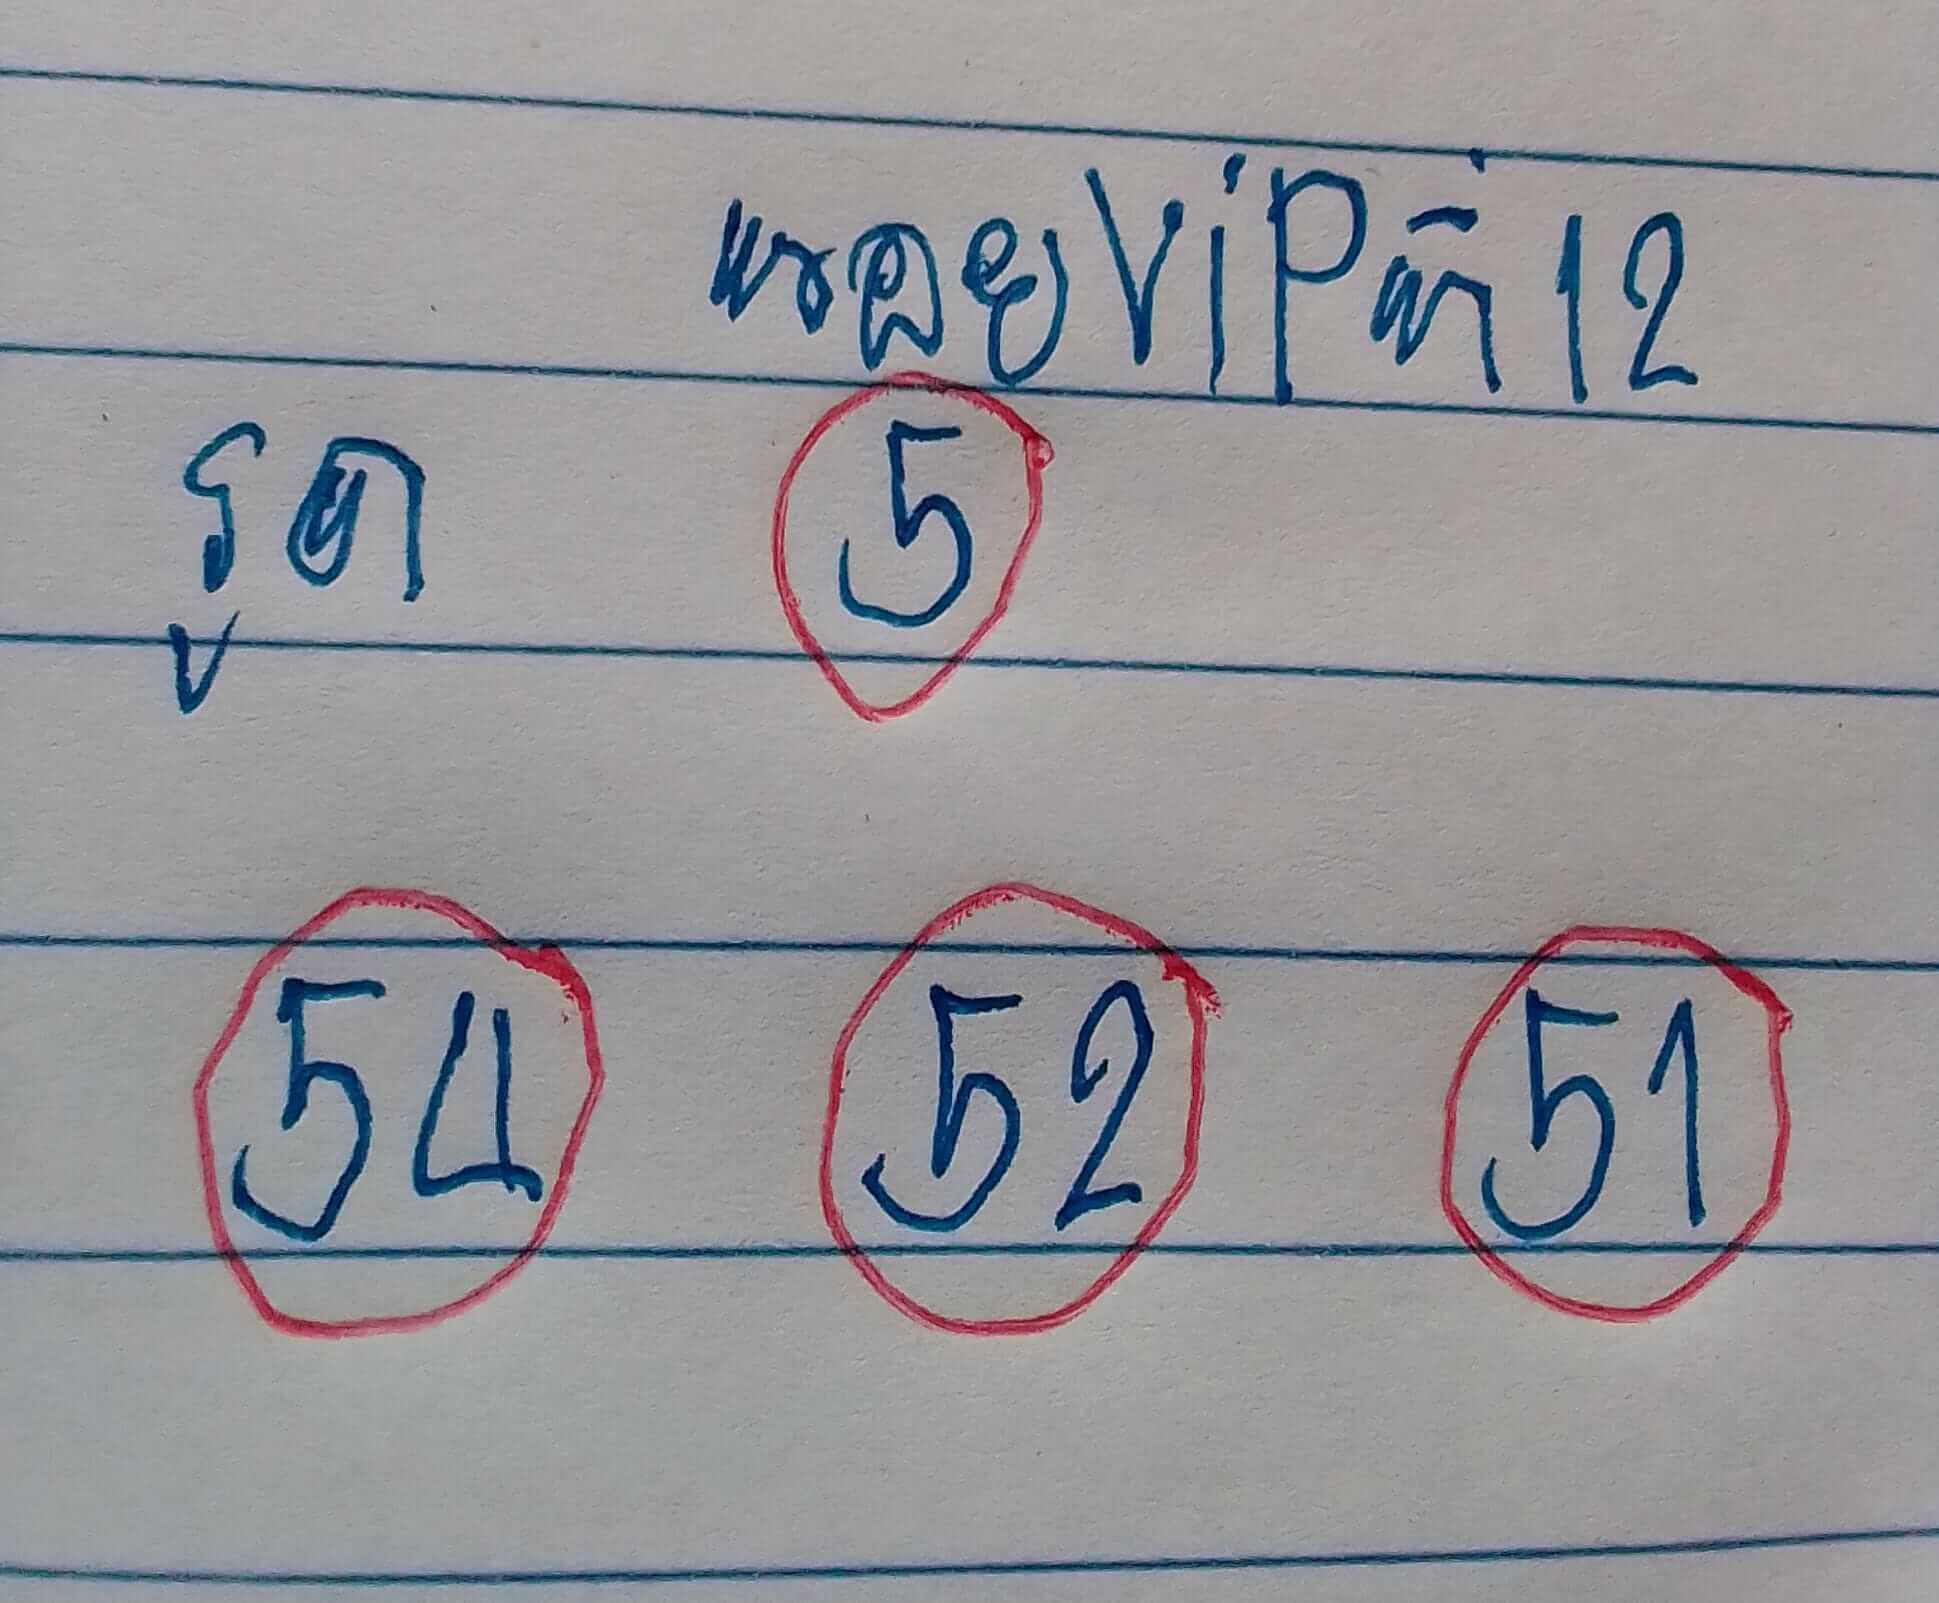 หวยVIPที่12
รูด 5
54 52 51